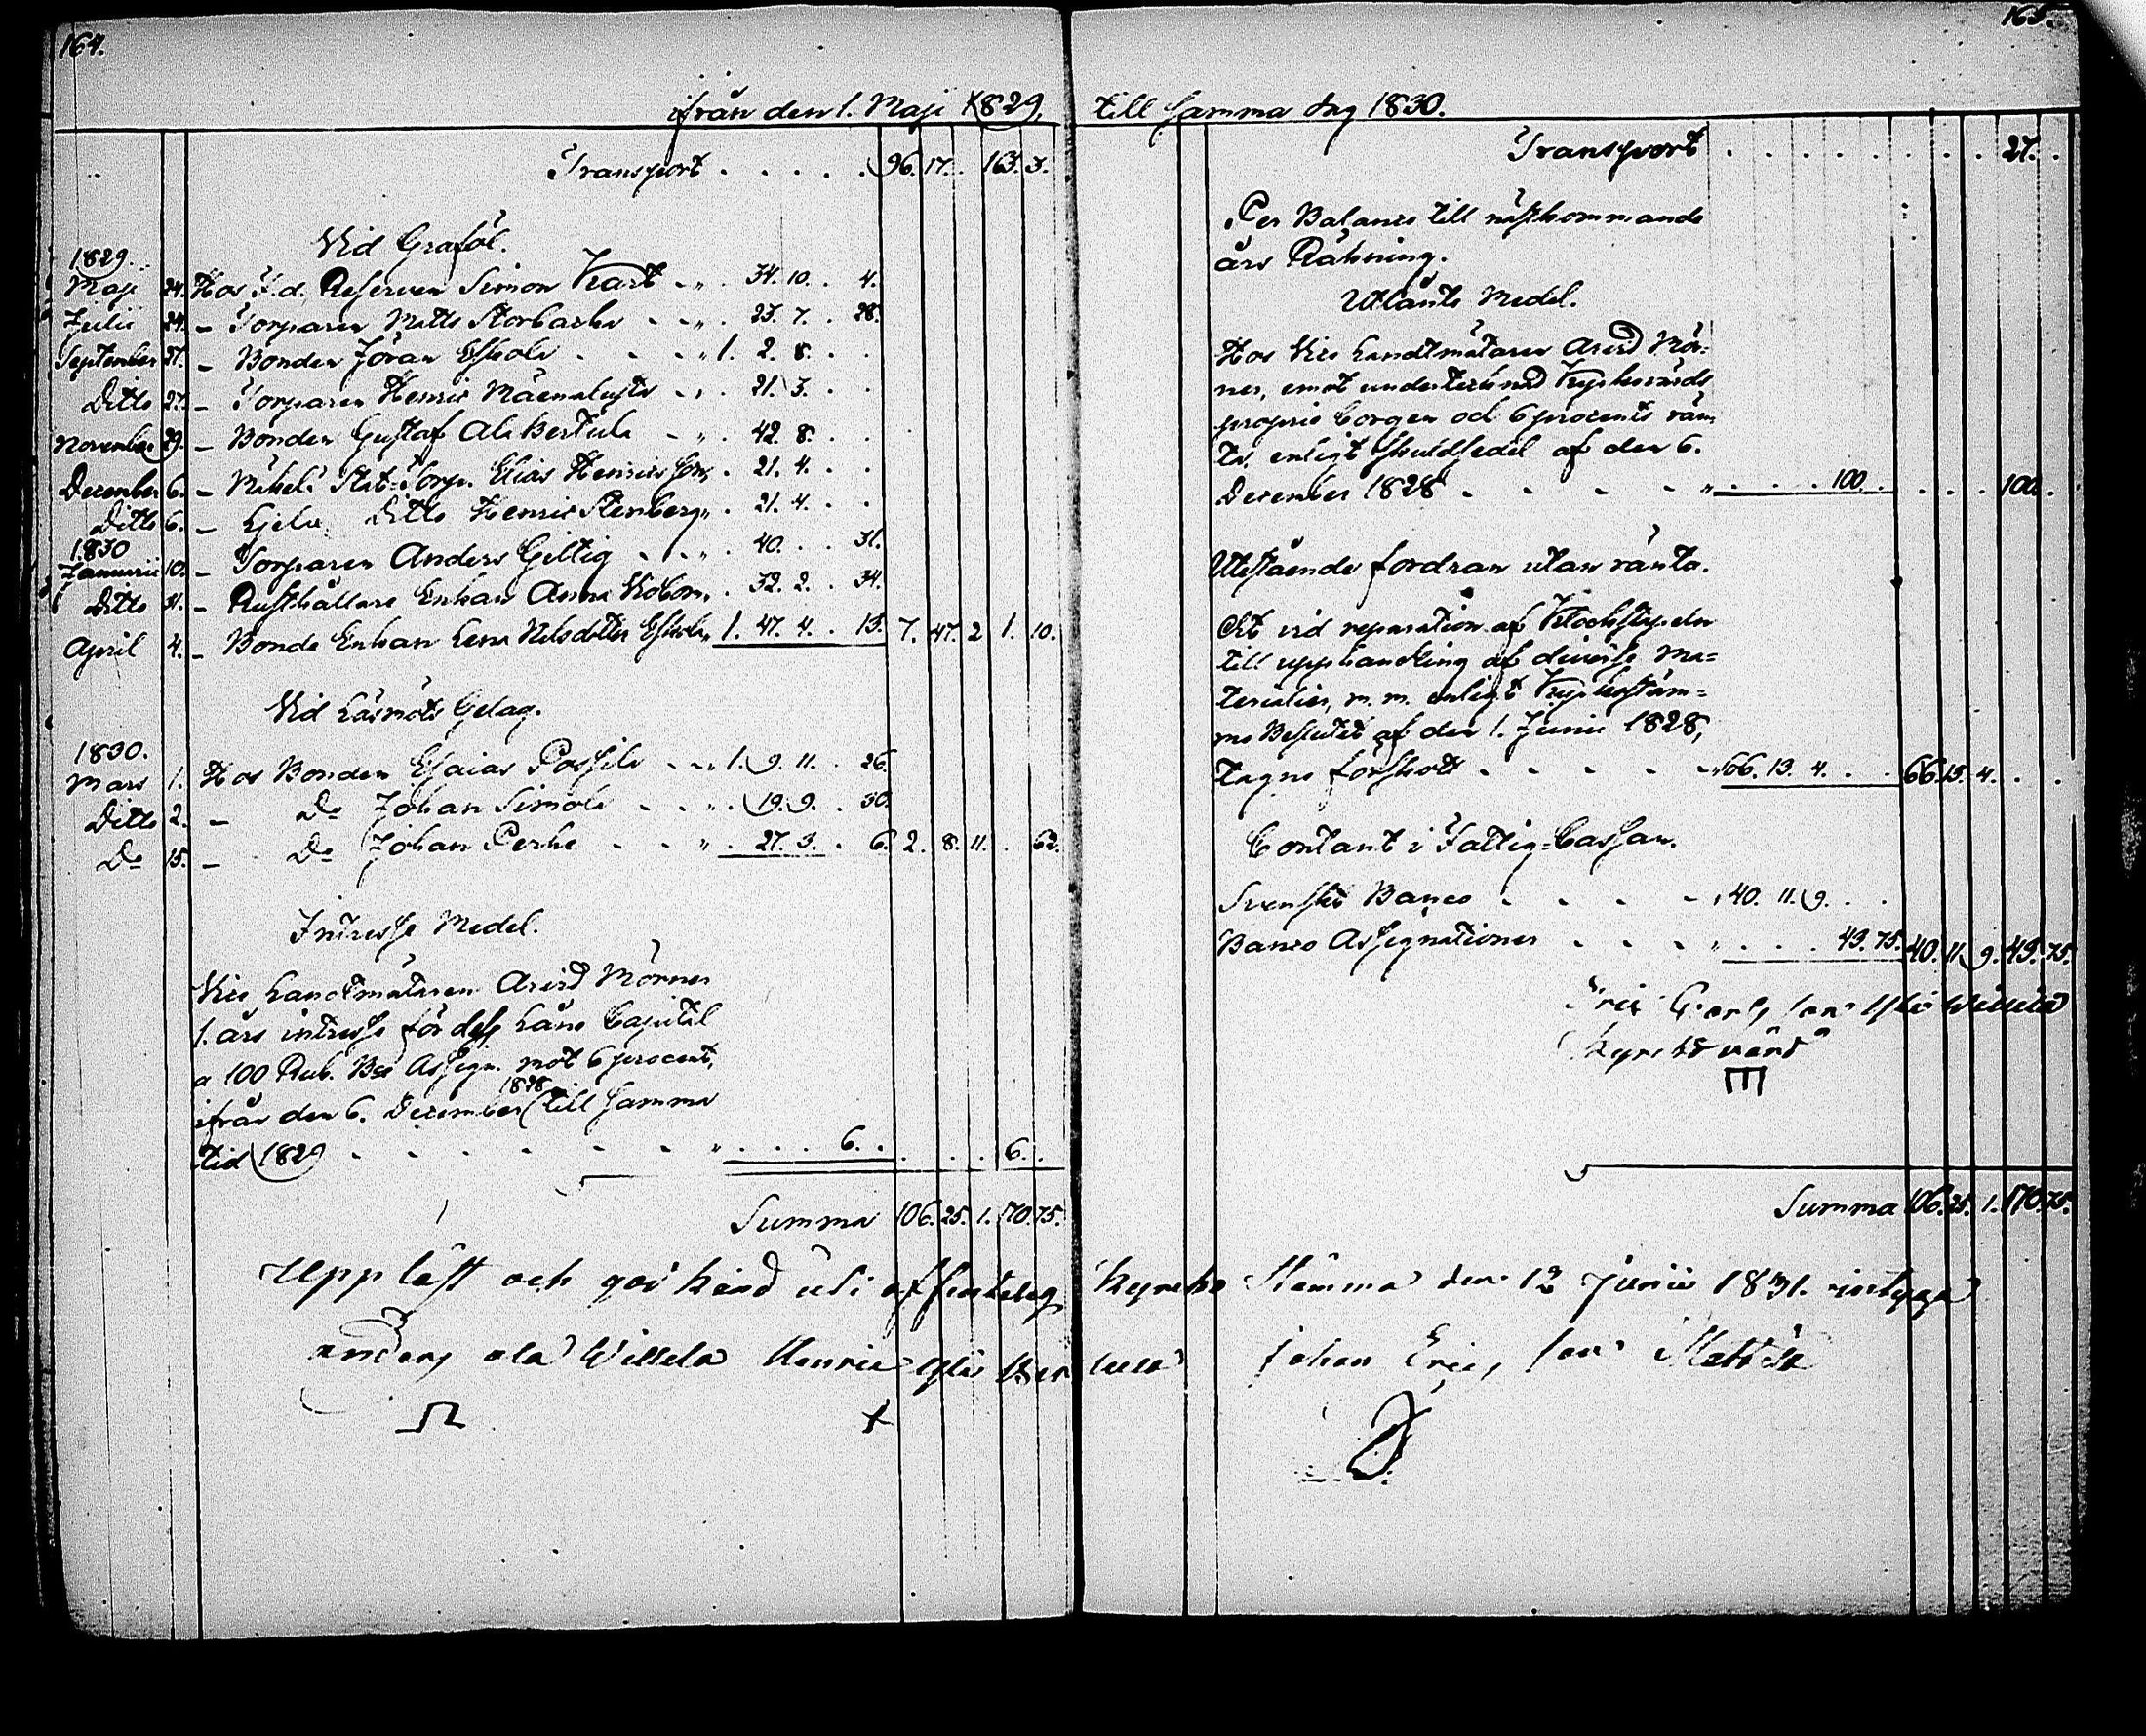 164.
ifrån den 1. Maji 1829,
Transport . . . . . 96. 17. . 163. 3.
Vid Graföl.
1829.
Maji 24. Hos F.d. Reserven Simon Kart . „ . 34. 10. . 4.
Julii 24. — Torparen Matts Storbacka . . „ . 23. 7. . 28.
September 27. — Bonden Jöran Eskola . . . „ 1. 2. 8. . .
Ditto 27. — Torparen Henric . „ . 21. 3. . .
November 29. — Bonden Gustaf Ala Bertula . „ . 42. 8. . .
December 6. — Mäkelä Stat-Torp. Elias Henrics Son „ . 21. 4. . .
Ditto 6. — Ditto Henric Stenberg „ . 21. 4. . .
1830
Januarii 10. — Torparen Anders Giltig . . „ . 40. . . 31.
Ditto 31. — Rusthållare Enkan Anna . 32. 2. . 34.
April 4. — Bonde Enkan Lena Nilsdotter Eskola „ 1. 47. 4. . 13. 7. 47. 2 1. 10.
Vid Läsmöts Gelag.
1830.
Mars 1. Hos Bonden Esaias Possila . . „ 1. 9. 11. . 26.
Ditto 2. — Do Johan Simola . . „ . 19. 9. . 30.
Do 15. — Do Johan Perhe . . „ . 27. 3. . 6. 2. 8. 11. . 62.
Intresse Medel.
Vice Landtmätaren Arvid Mörner
1. års intresse för dess Låne Capital
a 100 Rub. Bco Assign. mot 6 procent,
ifrån den 6. December 1828 till samma
tid 1829 . . . . . . „ . . . 6. . . . . 6. .
Summa 106. 25. 1. 170. 75.
Uppläst och god känd uti offentelig
anders ala Willela Henric Ylis Ber
165.
till samma dag 1830.
Transport . . . . . . . . . 27. .
Per Balance till nästkommande
års Räkning.
Utlånte Medel.
Hos Vice Landtmätaren Arvid Mör-
ner, emot undertecknad Kyrkovärds
proprie borgen och 6 procents rän-
ta, enligt skuldsedel af den 6.
December 1828 . . . . „ . . . 100. . . . . 100. .
Utestående fordran utan ränta.
Ut vid reparation af Klockstapeln
till upphandling af diverse Ma-
terialier, m. m. enligt Kyrkostäm-
mo Beslutet af den 1. Junii 1828,
tagne förskott . . . . . „ 66. 13. 4. . . 66. 13. 4. . .
Contant i Fattig-Cassan.
Svenske Banco . . . . „ 40. 11. 9. . .
Banco Assignationer . . . „ . . . 43. 75. 40. 11. 9. 43. 75.
Eric Carls son Ylis Willela
Kyrckovärd
Summa 106. 25. 1. 170. 75.
Kyrcko Stämma den 12 Junii 1831. intyga
tula Johan Erics son Mattila